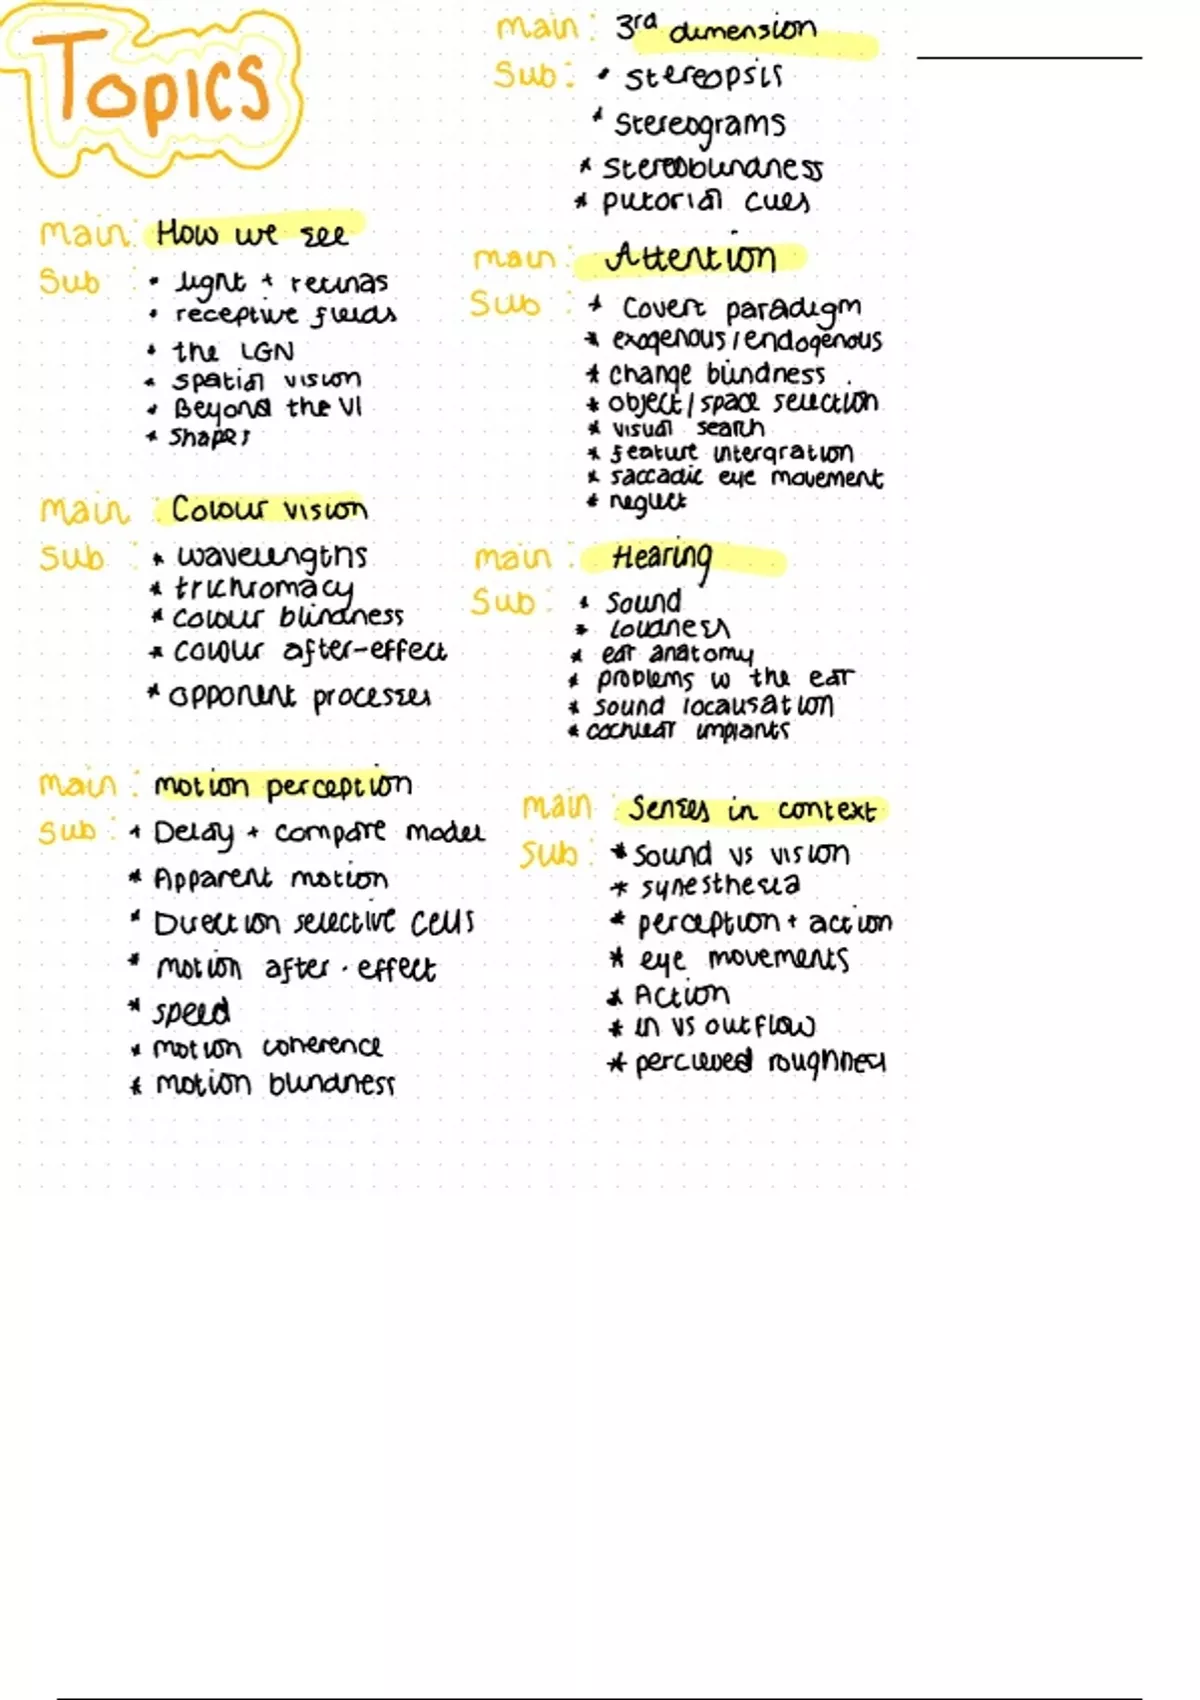 Topics
main: How we see
Sub : • light + retinas
• receptive fields
* the LGN
* spatial vision
* Beyond the V1
* shapes
main : Colour vision
Sub : * wavelengths
* trichromacy
* colour blindness
* colour after-effect
* opponent processes
main : motion perception
Sub : * Delay + compare model
* Apparent motion
* Direction selective cells
* motion after-effect
* speed
* motion coherence
* motion blindness
main : 3rd dimension
Sub : • Stereopsis
* Stereograms
* Stereoblindness
* pictorial cues
main : Attention
Sub : * Covert paradigm
* exogenous/endogenous
* change blindness
* object/space selection
* visual search
* feature intergration
* saccadic eye movement
* neglect
main : Hearing
Sub : * Sound
* loudness
* ear anatomy
* problems w the ear
* sound localisation
* cochlear implants
main : Senses in context
Sub : * Sound vs vision
* synesthesia
* perception + action
* eye movements
* Action
* in vs outflow
* percieved roughness